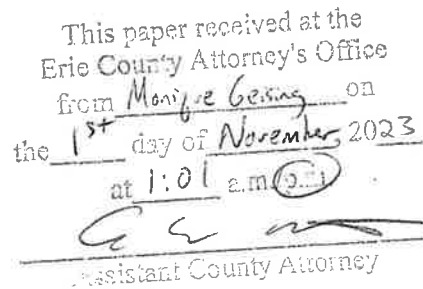 This paper received at the
Erie County Attorney's Office
from Monique Geising on
the 1st day of November, 2023
at 1:01 a.m. p.m.
Assistant County Attorney